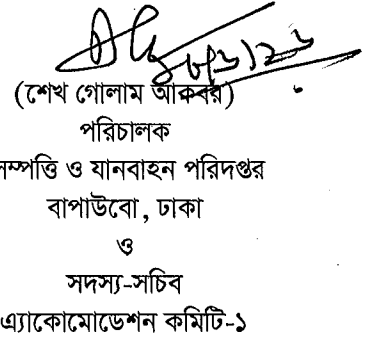 (শেখ গোলাম আকবর)
পরিচালক
সম্পত্তি ও যানবাহন পরিদপ্তর
বাপাউবো, ঢাকা
ও
সদস্য-সচিব
এ্যাকোমোডেশন কমিটি-১